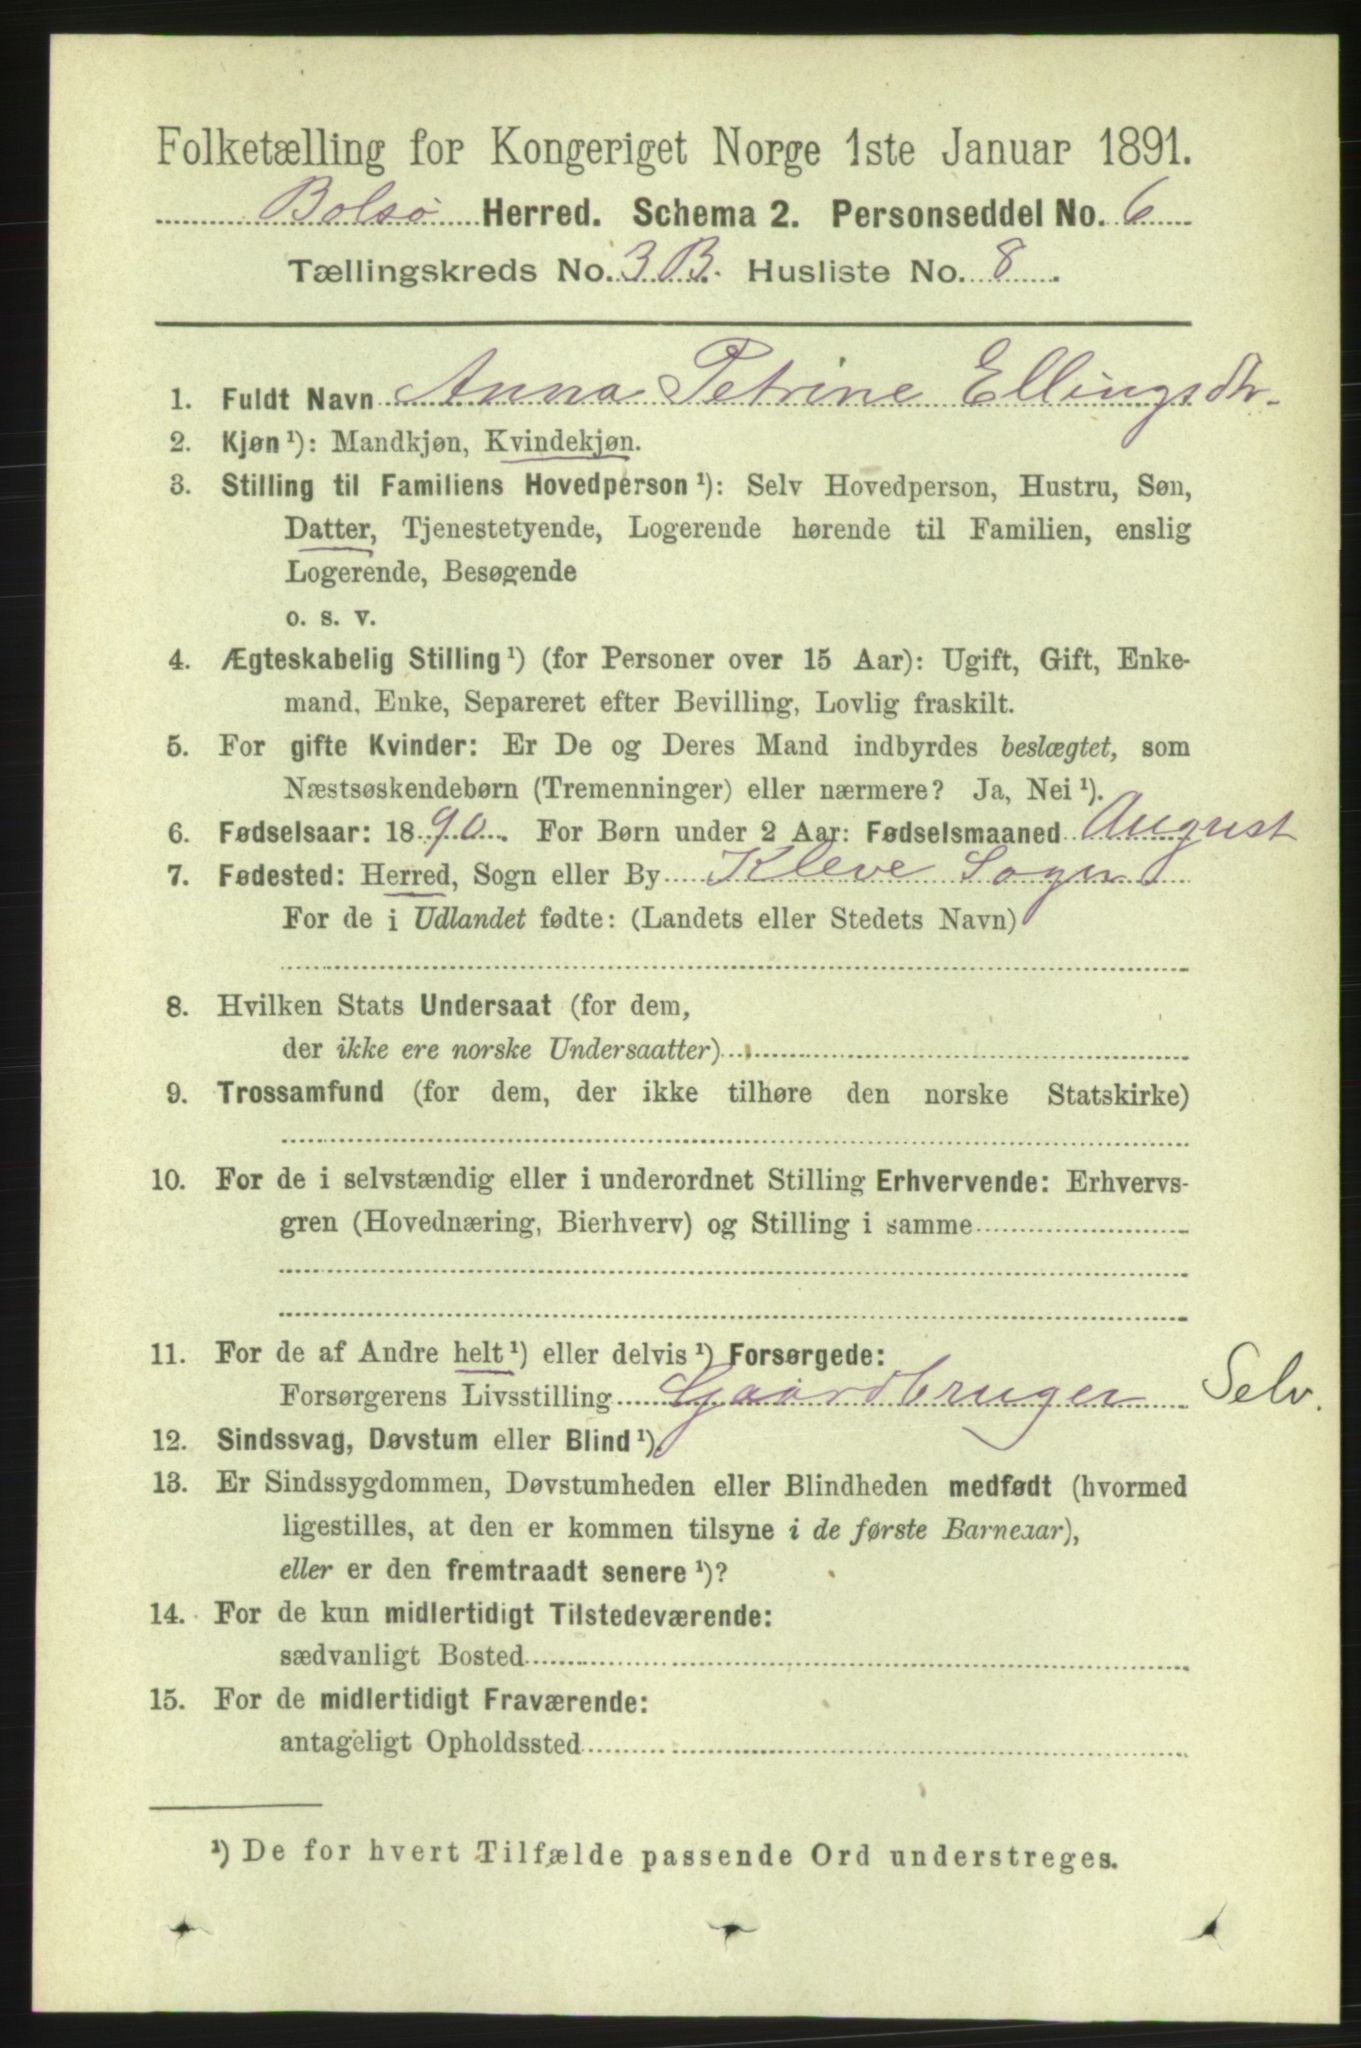 Folketælling for Kongeriget Norge 1ste Januar 1891.
Bolsø Herred. Schema 2. Personseddel No. 6
Tællingskreds No. 3 B. Husliste No. 8.
1. Fuldt Navn Anna Petrine Ellingsdtr.
2. Kjøn ¹): Mandkjøn, Kvindekjøn.
3. Stilling til Familiens Hovedperson ¹): Selv Hovedperson, Hustru, Søn,
Datter, Tjenestetyende, Logerende hørende til Familien, enslig
Logerende, Besøgende
o. s. v.
4. Ægteskabelig Stilling ¹) (for Personer over 15 Aar): Ugift, Gift, Enke-
mand, Enke, Separeret efter Bevilling, Lovlig fraskilt.
5. For gifte Kvinder: Er De og Deres Mand indbyrdes beslægtet, som
Næstsøskendebørn (Tremenninger) eller nærmere? Ja, Nei ¹).
6. Fødselsaar: 1890. For Børn under 2 Aar: Fødselsmaaned August
7. Fødested: Herred, Sogn eller By Kleve Sogn
For de i Udlandet fødte: (Landets eller Stedets Navn)
8. Hvilken Stats Undersaat (for dem,
der ikke ere norske Undersaatter)
9. Trossamfund (for dem, der ikke tilhøre den norske Statskirke)
10. For de i selvstændig eller i underordnet Stilling Erhvervende: Erhvervs-
gren (Hovednæring, Bierhverv) og Stilling i samme
11. For de af Andre helt ¹) eller delvis ¹) Forsørgede:
Forsørgerens Livsstilling Gaardbruger Selv.
12. Sindssvag, Døvstum eller Blind ¹).
13. Er Sindssygdommen, Døvstumheden eller Blindheden medfødt (hvormed
ligestilles, at den er kommen tilsyne i de første Barneaar),
eller er den fremtraadt senere ¹)?
14. For de kun midlertidigt Tilstedeværende:
sædvanligt Bosted
15. For de midlertidigt Fraværende:
antageligt Opholdssted
¹) De for hvert Tilfælde passende Ord understreges.